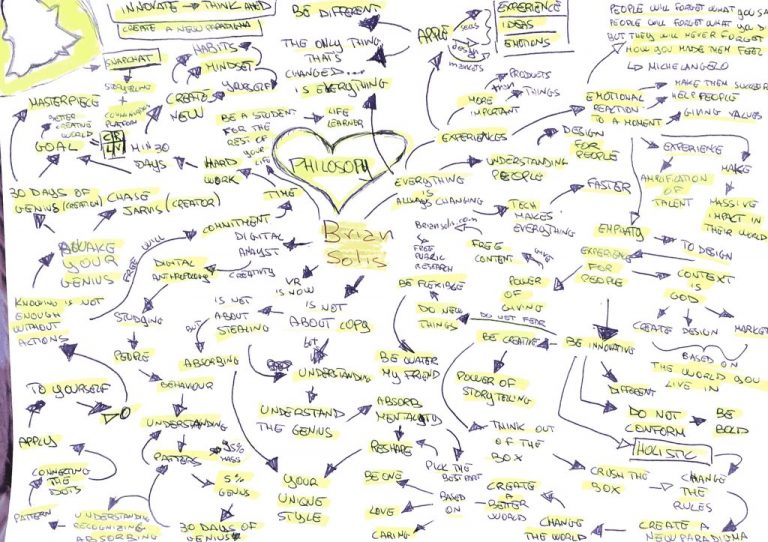 INNOVATE → THINK AHEAD
CREATE A NEW PARADIGMA
SNAPCHAT
STORYTELLING
+
COMMUNICATION
PLATFORM
HABITS
MINDSET
YOURSELF
CREATE
NEW
MASTERPIECE
BETTER
CREATING
WORLD
GOAL
MIN 30
DAYS
HARD
WORK
BE DIFFERENT
THE ONLY THING
THAT'S
CHANGED....
IS EVERYTHING
BE A STUDENT
FOR THE
REST OF
YOUR
LIFE
LIFE
LEARNER
PHILOSOPHY
Brian
Solis
APPLE
design
markets
EXPERIENCE
IDEAS
EMOTIONS
PEOPLE WILL FORGET WHAT YOU SA
PEOPLE WILL FORGET WHAT YOU D
BUT THEY WILL NEVER FORGET
HOW YOU MADE THEM FEEL
↳ MICHELANGELO
PRODUCTS
MORE
IMPORTANT
THAN
THINGS
EXPERIENCES
EMOTIONAL
REACTION
TO A MOMENT
MAKE THEM SUCCEED
HELP PEOPLE
GIVING VALUES
UNDERSTANDING
PEOPLE
DESIGN
FOR
PEOPLE
EXPERIENCE
AMPLIFICATION
OF
TALENT
MAKE
MASSIVE
IMPACT IN
THEIR WORLD
EVERYTHING
IS
ALWAYS CHANGING
TECH
MAKES
EVERYTHING
FASTER
30 DAYS OF
GENIUS (CREATION)
CHASE
JARVIS (CREATOR)
TIME
COMMITMENT
DIGITAL
ANALYST
CREATIVITY
DIGITAL
ANTHROPOLOGY
FREE WILL
AWAKE
YOUR
GENIUS
KNOWING IS NOT
ENOUGH
WITHOUT
ACTIONS
STUDYING
PEOPLE
BEHAVIOUR
UNDERSTANDING
PATTERNS
95%
MASS
5%
GENIUS
30 DAYS OF
GENIUS
UNDERSTANDING
RECOGNIZING
ABSORBING
PATTERN
CONNECTING
THE
DOTS
APPLY
TO YOURSELF
DO
VR
IS NOW
IS NOT
ABOUT COPY
IS NOT
ABOUT
STEALING
BUT
ABSORBING
but
UNDERSTANDING
UNDERSTAND
THE GENIUS
YOUR
UNIQUE
STYLE
Briansolis.com
FREE
PUBLIC
RESEARCH
FREE
CONTENT
GIVE
POWER
OF
GIVING
BE FLEXIBLE
DO NEW
THINGS
DO NOT FEAR
BE WATER
MY FRIEND
ABSORB
MENTALITY
RESHAPE
PICK THE
BEST PART
BE ONE
LOVE
CARING
BASED
ON
CREATE
A
BETTER
WORLD
BE CREATIVE
POWER OF
STORYTELLING
THINK OUT
OF THE
BOX
CRUSH THE
BOX
CHANGE
THE
RULES
CREATE A
NEW PARADIGMA
CHANGE
THE WORLD
EMPHATY
EXPERIENCE
FOR
PEOPLE
TO DESIGN
CONTEXT
IS
GOD
CREATE
DESIGN
MARKET
BASED ON
THE WORLD YOU
LIVE IN
BE INNOVATIVE
DIFFERENT
DO NOT
CONFORM
BE
BOLD
HOLISTIC